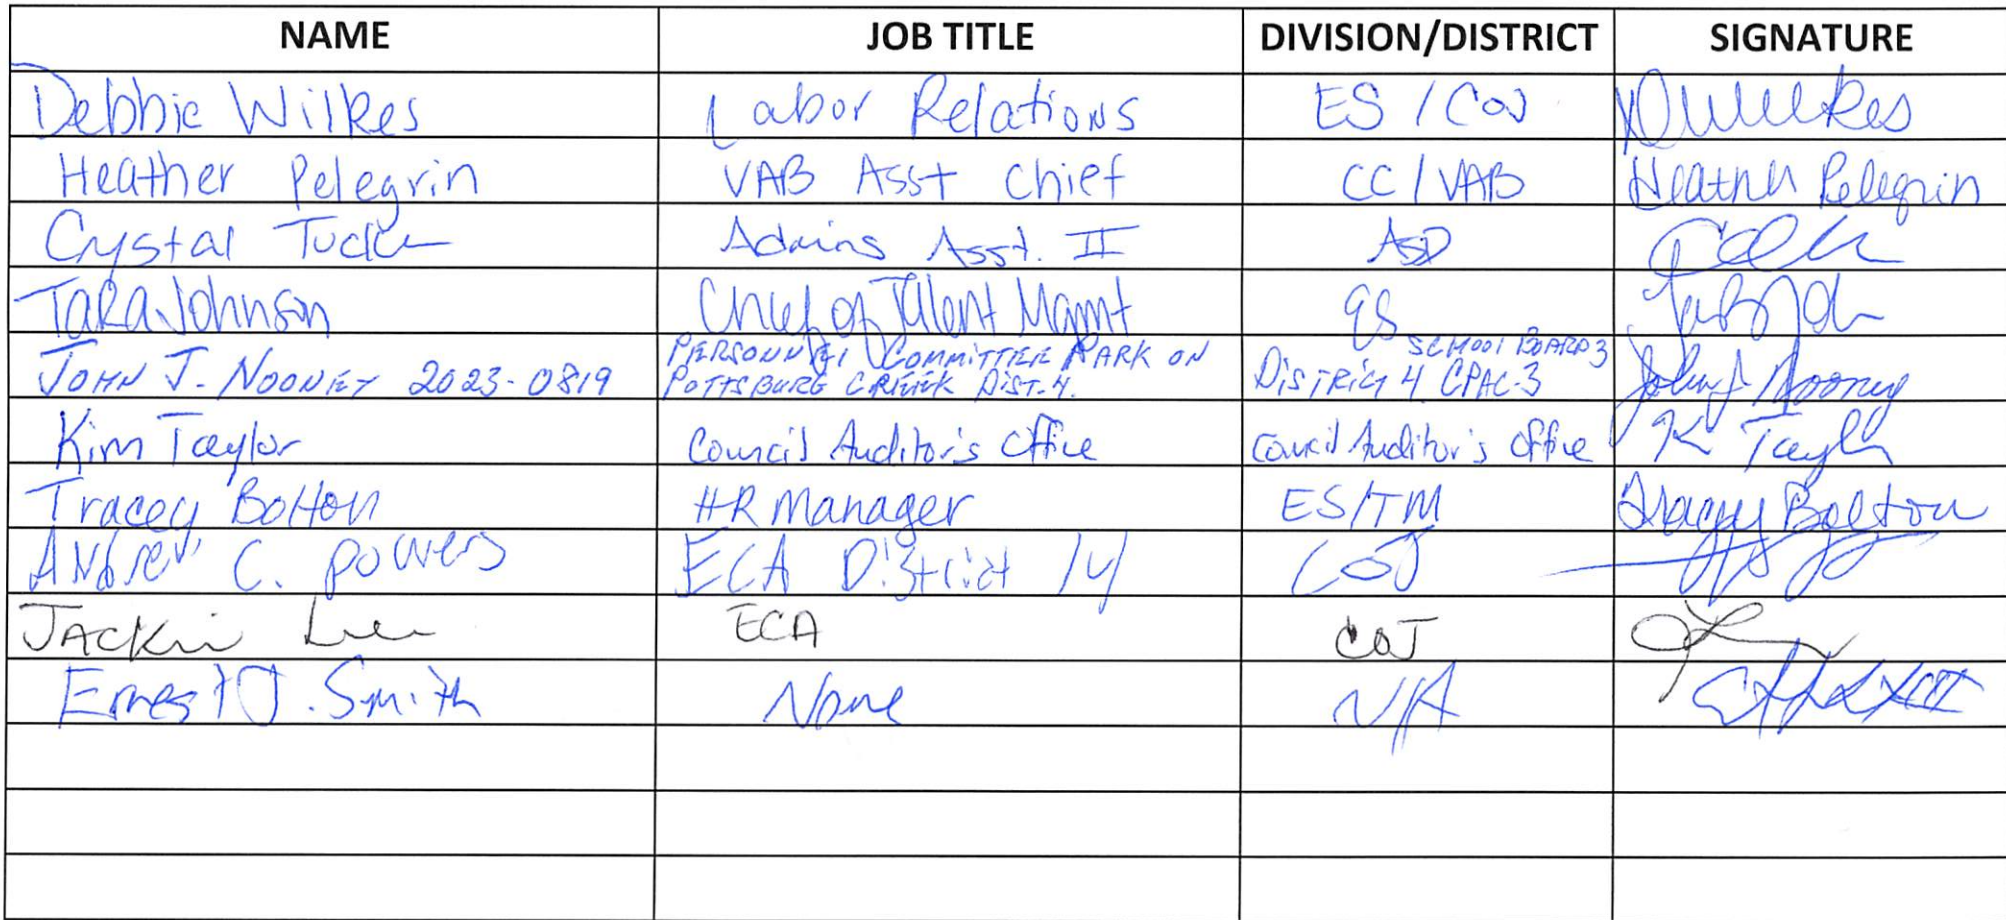 NAME JOB TITLE DIVISION/DISTRICT SIGNATURE
Debbie Wilkes Labor Relations ES / COJ DWilkes
Heather Pelegrin VAB Asst Chief CC / VAB Heather Pelegrin
Crystal Tucker Admins Asst. II ASD
Tara Johnson Chief of Talent Mgmt ES
JOHN J. NOONEY 2023-0819 PERSONNEL COMMITTEE PARK ON SCHOOL BOARD 3
POTTSBURG CREEK DIST. 4. DISTRICT 4 CPAC-3 John J Nooney
Kim Taylor Council Auditor's Office Council Auditor's Office K Taylor
Tracey Bolton HR Manager ES/TM Tracey Bolton
Andrew C. Powers ECA District 14 COJ
Jackie Lee ECA COJ
Ernest J. Smith None N/A